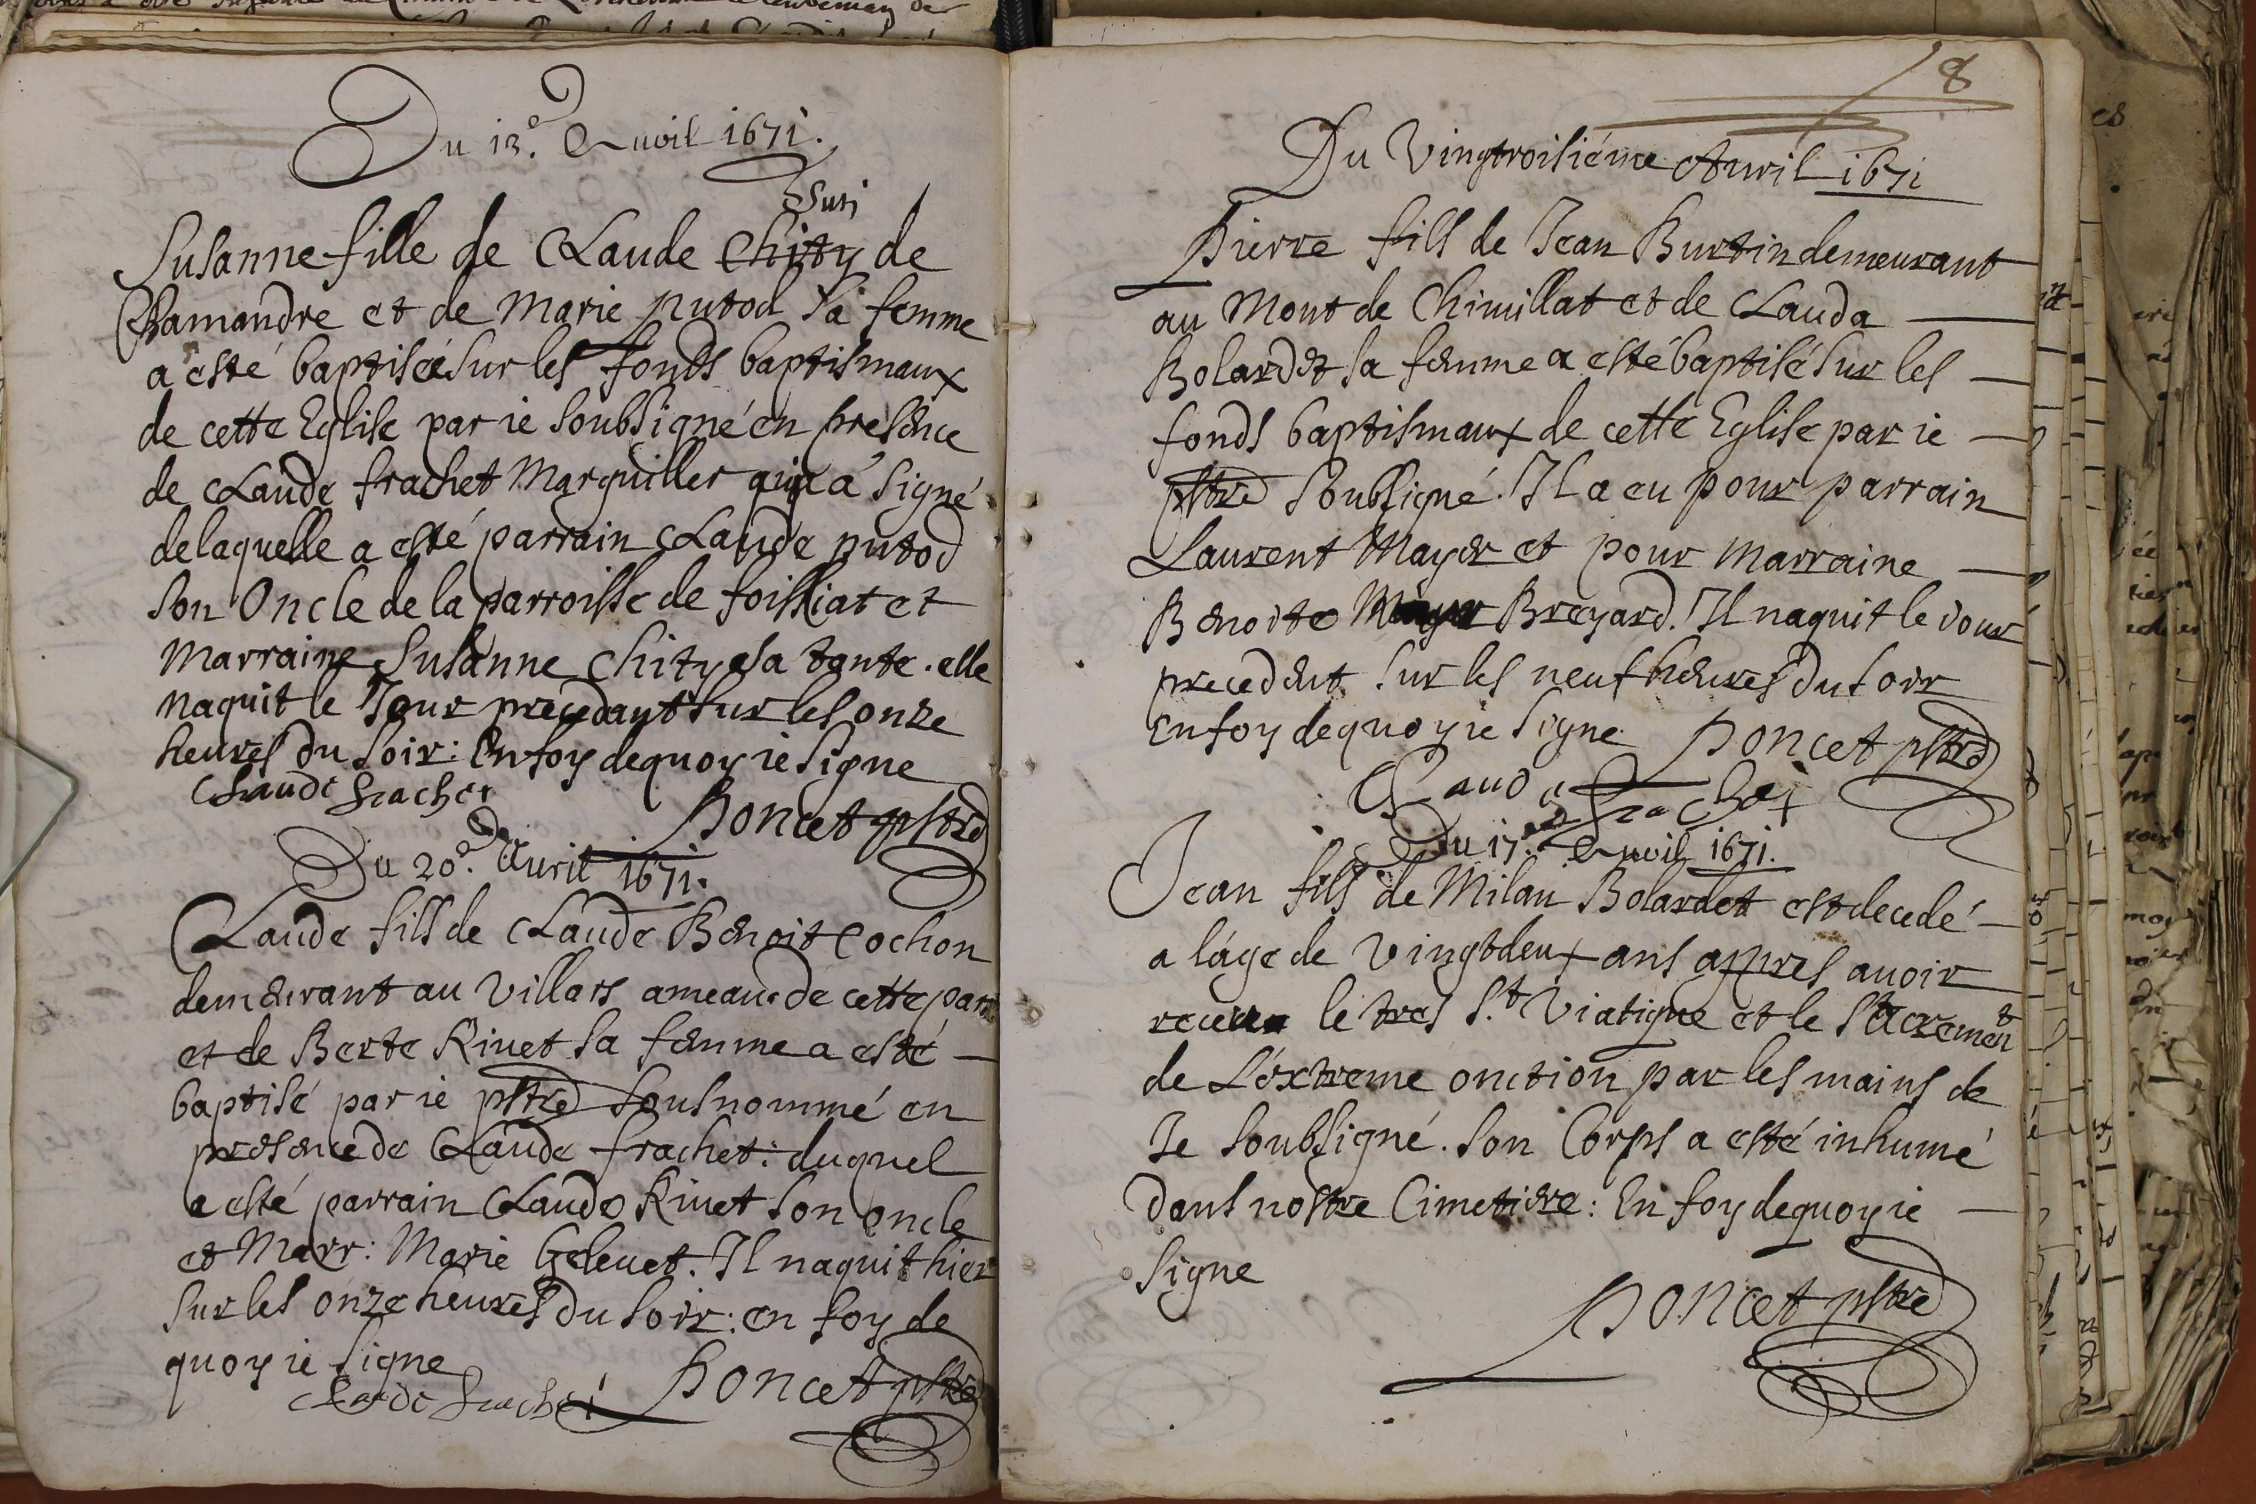 Du 13.e Auvil 1671.
Suri
Susanne fille de Claude Chity de
Chamandre et de Marie putod sa femme
a esté baptisée sur les fonds baptismaux
de cette Eglise par ie soubsigné en presence
de Claude frachet Marguiller qui a signé
de laquelle a esté parrain Claude putod
son Oncle de la parroisse de foissiat et
Marraine Susanne Chity sa tante. elle
naquit le Jour precedant sur les onze
heures du soir: En foy dequoy ie signe
Claude frachet
Poncet pstre
Du 20.e Auril 1671.
Claude fils de Claude Benoit Cochon
demeurant au Villars ameau de cette parr
et de Berte Rivet sa femme a esté
baptisé par ie pstre sousnommé en
presence de Claude frachet: duquel
a esté parrain Claude Rivet son oncle
et Marr: Marie Gelevet. Il naquit hier
sur les onze heures du soir: en foy de
quoy ie signe
Claude frachet Poncet pstre
8
Du Vingtroisiéme Avril 1671
Pierre fils de Jean Burtin demeurant
au Mont de Chivillat et de Clauda
Bolardet sa femme a esté baptisé sur les
fonds baptismaux de cette Eglise par ie
pstre soubsigné. Il a eu pour parrain
Laurent Mayer et pour Marraine
Benoite Mayer Breyard. Il naquit le iour
precedent sur les neuf heures du soir
En foy dequoy ie signe Poncet pstre
Claude frachet
Du 17.e Auvil 1671.
Jean fils de Milan Bolardet est decedé
a láge de Vingtdeux ans appres avoir
receu le tres S.t Viatique et le Sacrement
de L'éxtreme onction par les mains de
Je soubsigné. Son Corps a esté inhumé
dans nostre Cimetiere: En foy dequoy ie
signe
Poncet pstre